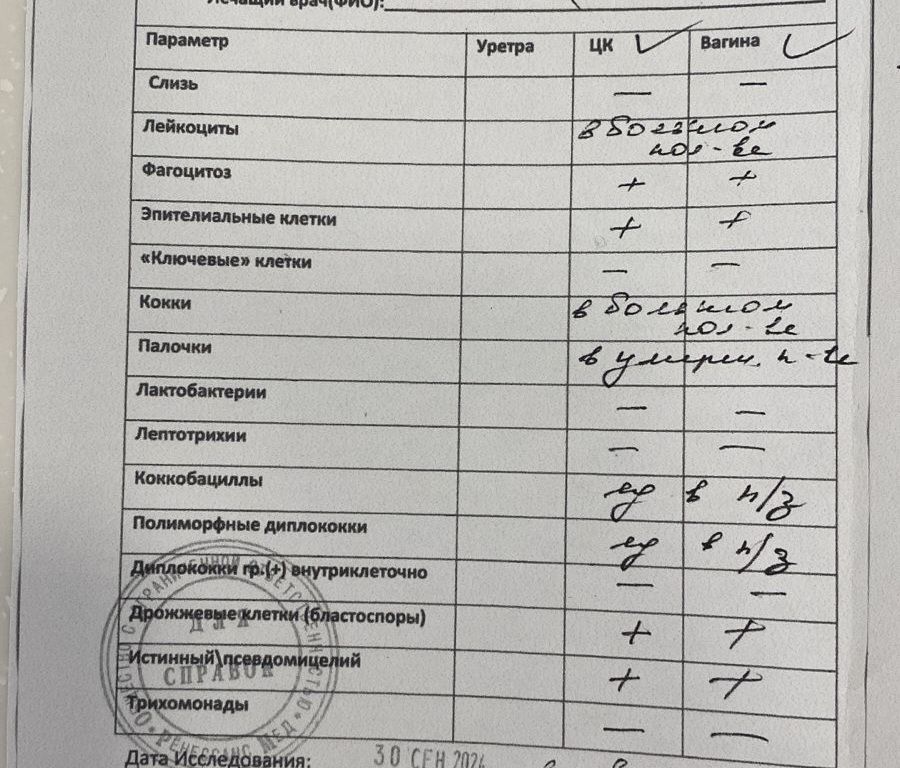 Лечащий врач(ФИО):
Параметр Уретра ЦК Вагина
Слизь — —
Лейкоциты в большом
кол-ве
Фагоцитоз + +
Эпителиальные клетки + +
«Ключевые» клетки — —
Кокки в большом
кол-ве
Палочки в умерен. к-ве
Лактобактерии — —
Лептотрихии — —
Коккобациллы ед в п/з
Полиморфные диплококки ед в п/з
Диплококки гр.(+) внутриклеточно — —
Дрожжевые клетки (бластоспоры) + +
Истинный\псевдомицелий + +
Трихомонады — —
ДЛЯ
СПРАВОК
РЕНЕССАНС МЕД
Дата Исследования: 30 СЕН 2024